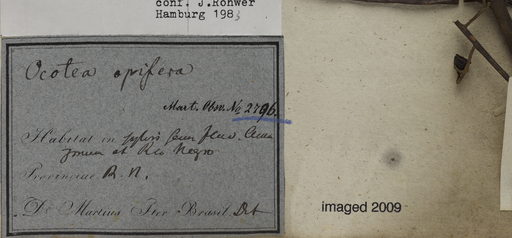 conf. J. Rohwer
Hamburg 1983
Ocotea opifera
Mart. Obs. No 2796.
Habitat in sylvis fluv. Ama
zonum et Rio Negro
Provinciae R. N.
Dr Martius Iter Brasil. Det
imaged 2009